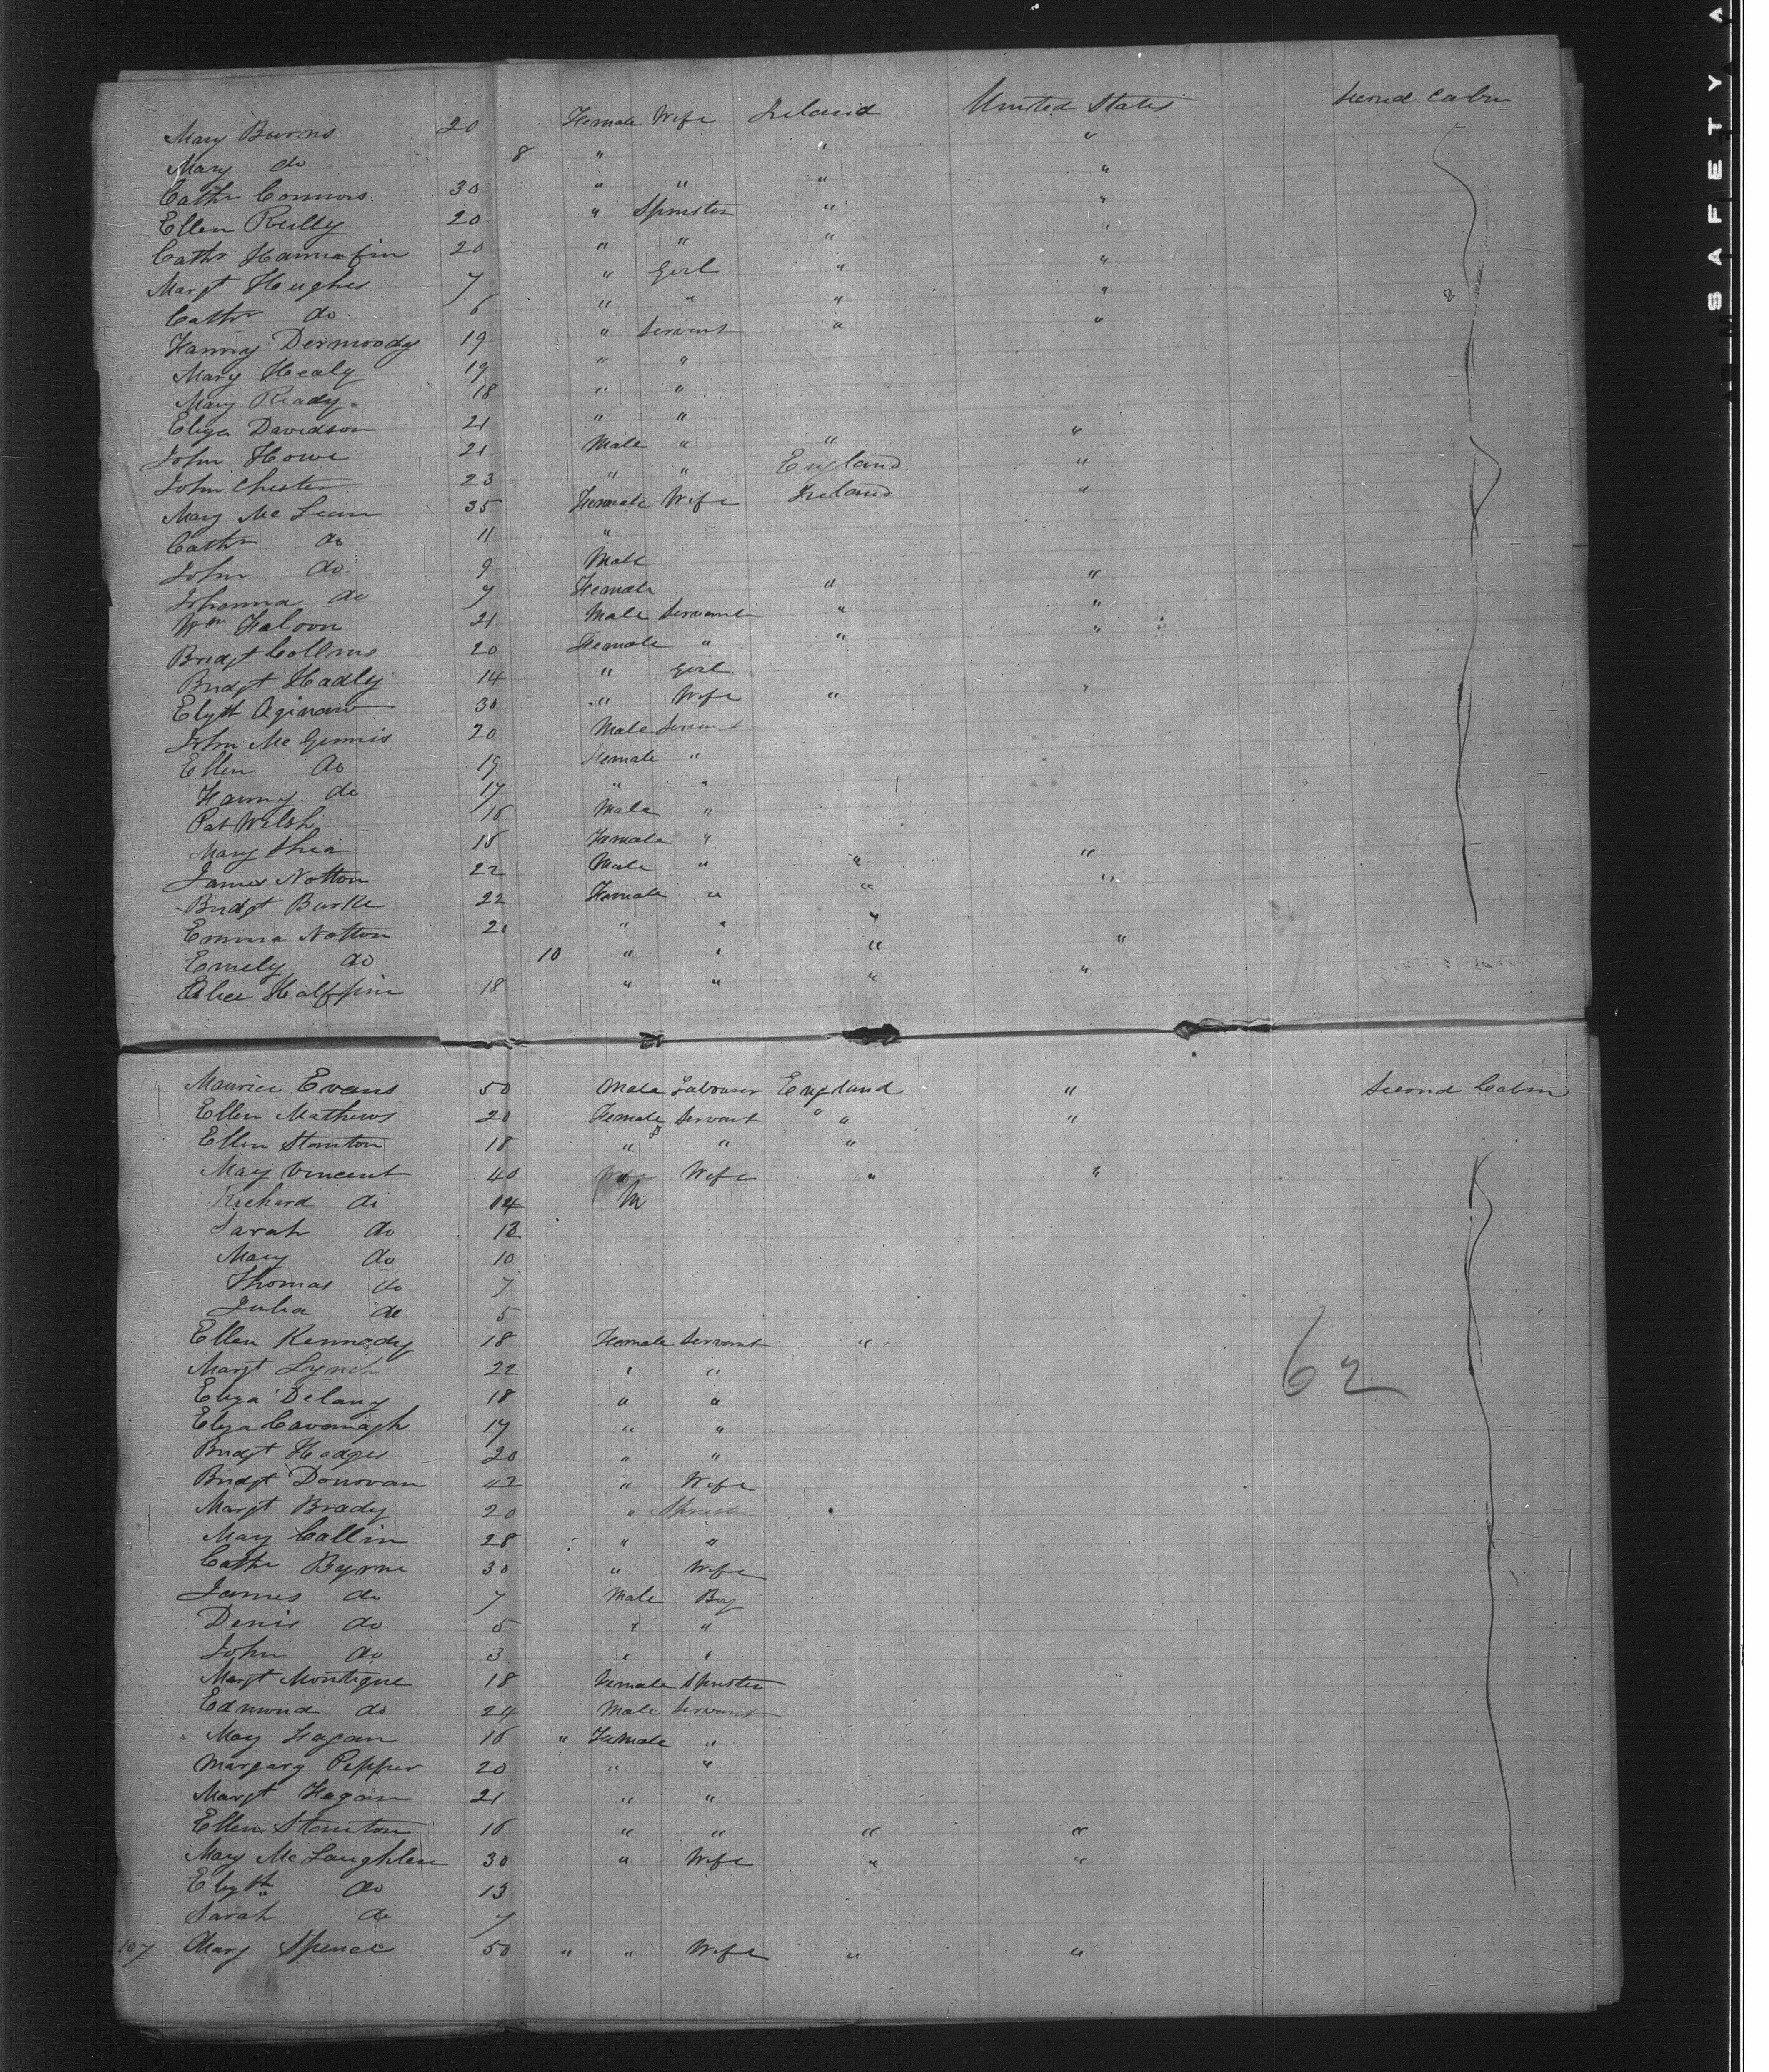 Mary Burns 20 Female Wife Ireland United States Second Cabin
Mary do 8 " " "
Cathr Connors 30 " " " "
Ellen Reilly 20 " Spinster " "
Cathr Hannafin 20 " " " "
Margt Hughes 7 " Girl " "
Cathr do 6 " " " "
Fanny Dermoody 19 " Servant " "
Mary Healy 19 " "
Mary Ready 18 " "
Eliza Davidson 21 " "
John Howe 21 Male " " "
John Chester 23 " " England "
Mary Mc Lean 35 Female Wife Ireland "
Cathr do 11 "
John do 9 Male
Johanna do 7 Female " "
Wm Faloon 21 Male Servant " "
Bridgt Collins 20 Female " " "
Bridgt Hadly 14 " Girl
Elyth 30 " Wife " "
John Mc Ginnis 20 Male Servant
Ellen do 19 Female "
Fanny do 17 " "
Pat Welsh 16 Male "
Mary Shea 15 Female "
James Notton 22 Male " " "
Bridgt Burke 22 Female " " "
Emma Notton 21 " " "
Emely do 10 " " " "
Alice Halfpin 18 " " " "
Maurice Evans 50 Male Labourer England " Second Cabin
Ellen Mathews 20 Female Servant " " "
Ellen Stanton 18 " " "
Mary Vincent 40 Wife " "
Richard do 14 M
Sarah do 12
Mary do 10
Thomas do 7
Julia do 5
Ellen Kennedy 18 Female Servant "
Margt Lynch 22 " "
62
Eliza Delany 18 " "
Eliza Cavanagh 17 " "
Bridgt Hodges 20 " "
Bridgt Donovan 42 " Wife
Margt Brady 20 " Spinst
Mary Callin 28 " "
Cathe Byrne 30 " Wife
James do 7 Male Boy
Denis do 5 " "
John do 3 " "
Margt Montigue 18 Female Spinster
Edmund do 24 Male Servant
Mary Hagan 16 " Female "
Margary Pepper 20 " "
Margt Hagan 21 " "
Ellen Stanton 16 " " " "
Mary Mc Laughlen 30 " Wife " "
Elizth do 13
Sarah do 7
107 Mary Spence 50 " " Wife " "
SAFETY